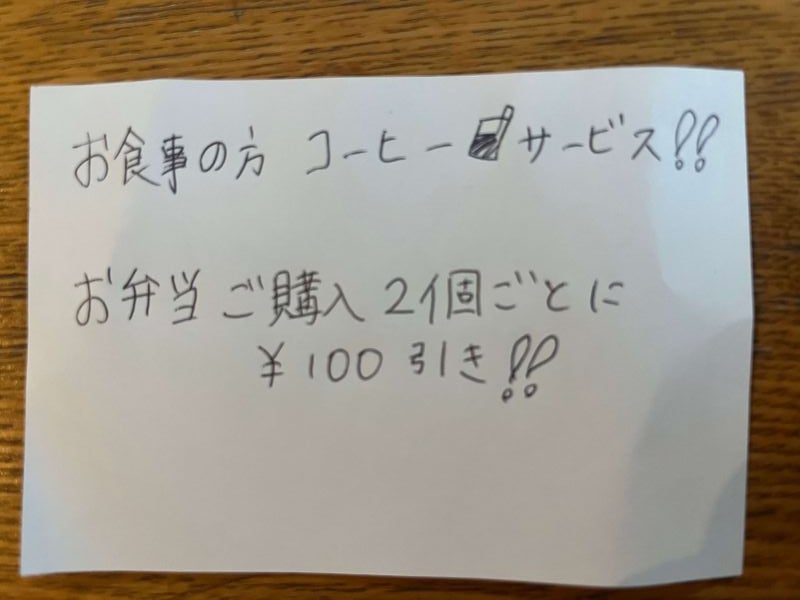 お食事の方 コーヒーサービス!!
お弁当 ご購入 2個ごとに
¥100 引き!!